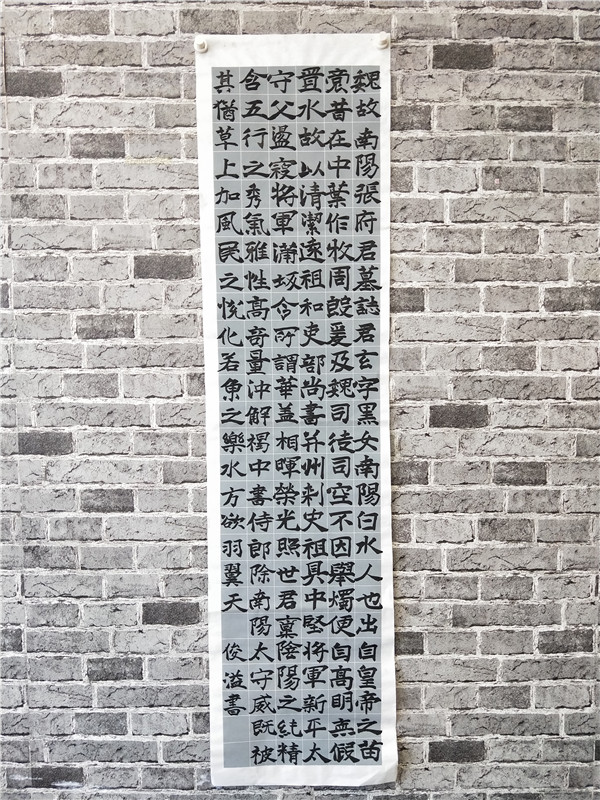 魏故南陽張府君墓誌君玄字黑女南陽白水人也出自皇帝之苗
裔昔在中葉作牧周殷爰及魏司徒司空不因舉燭便自高明无假
置水故以清潔遠祖和吏部尚書并州刺史祖具中堅將軍新平太
守父盪寇將軍蒲坂令所謂華蓋相暉榮光照世君稟陰陽之純精
含五行之秀氣雅性高奇量沖解褐中書侍郎除南陽太守威既被
其猶草上加風民之悅化若魚之樂水方欲羽翼天
俊溢書